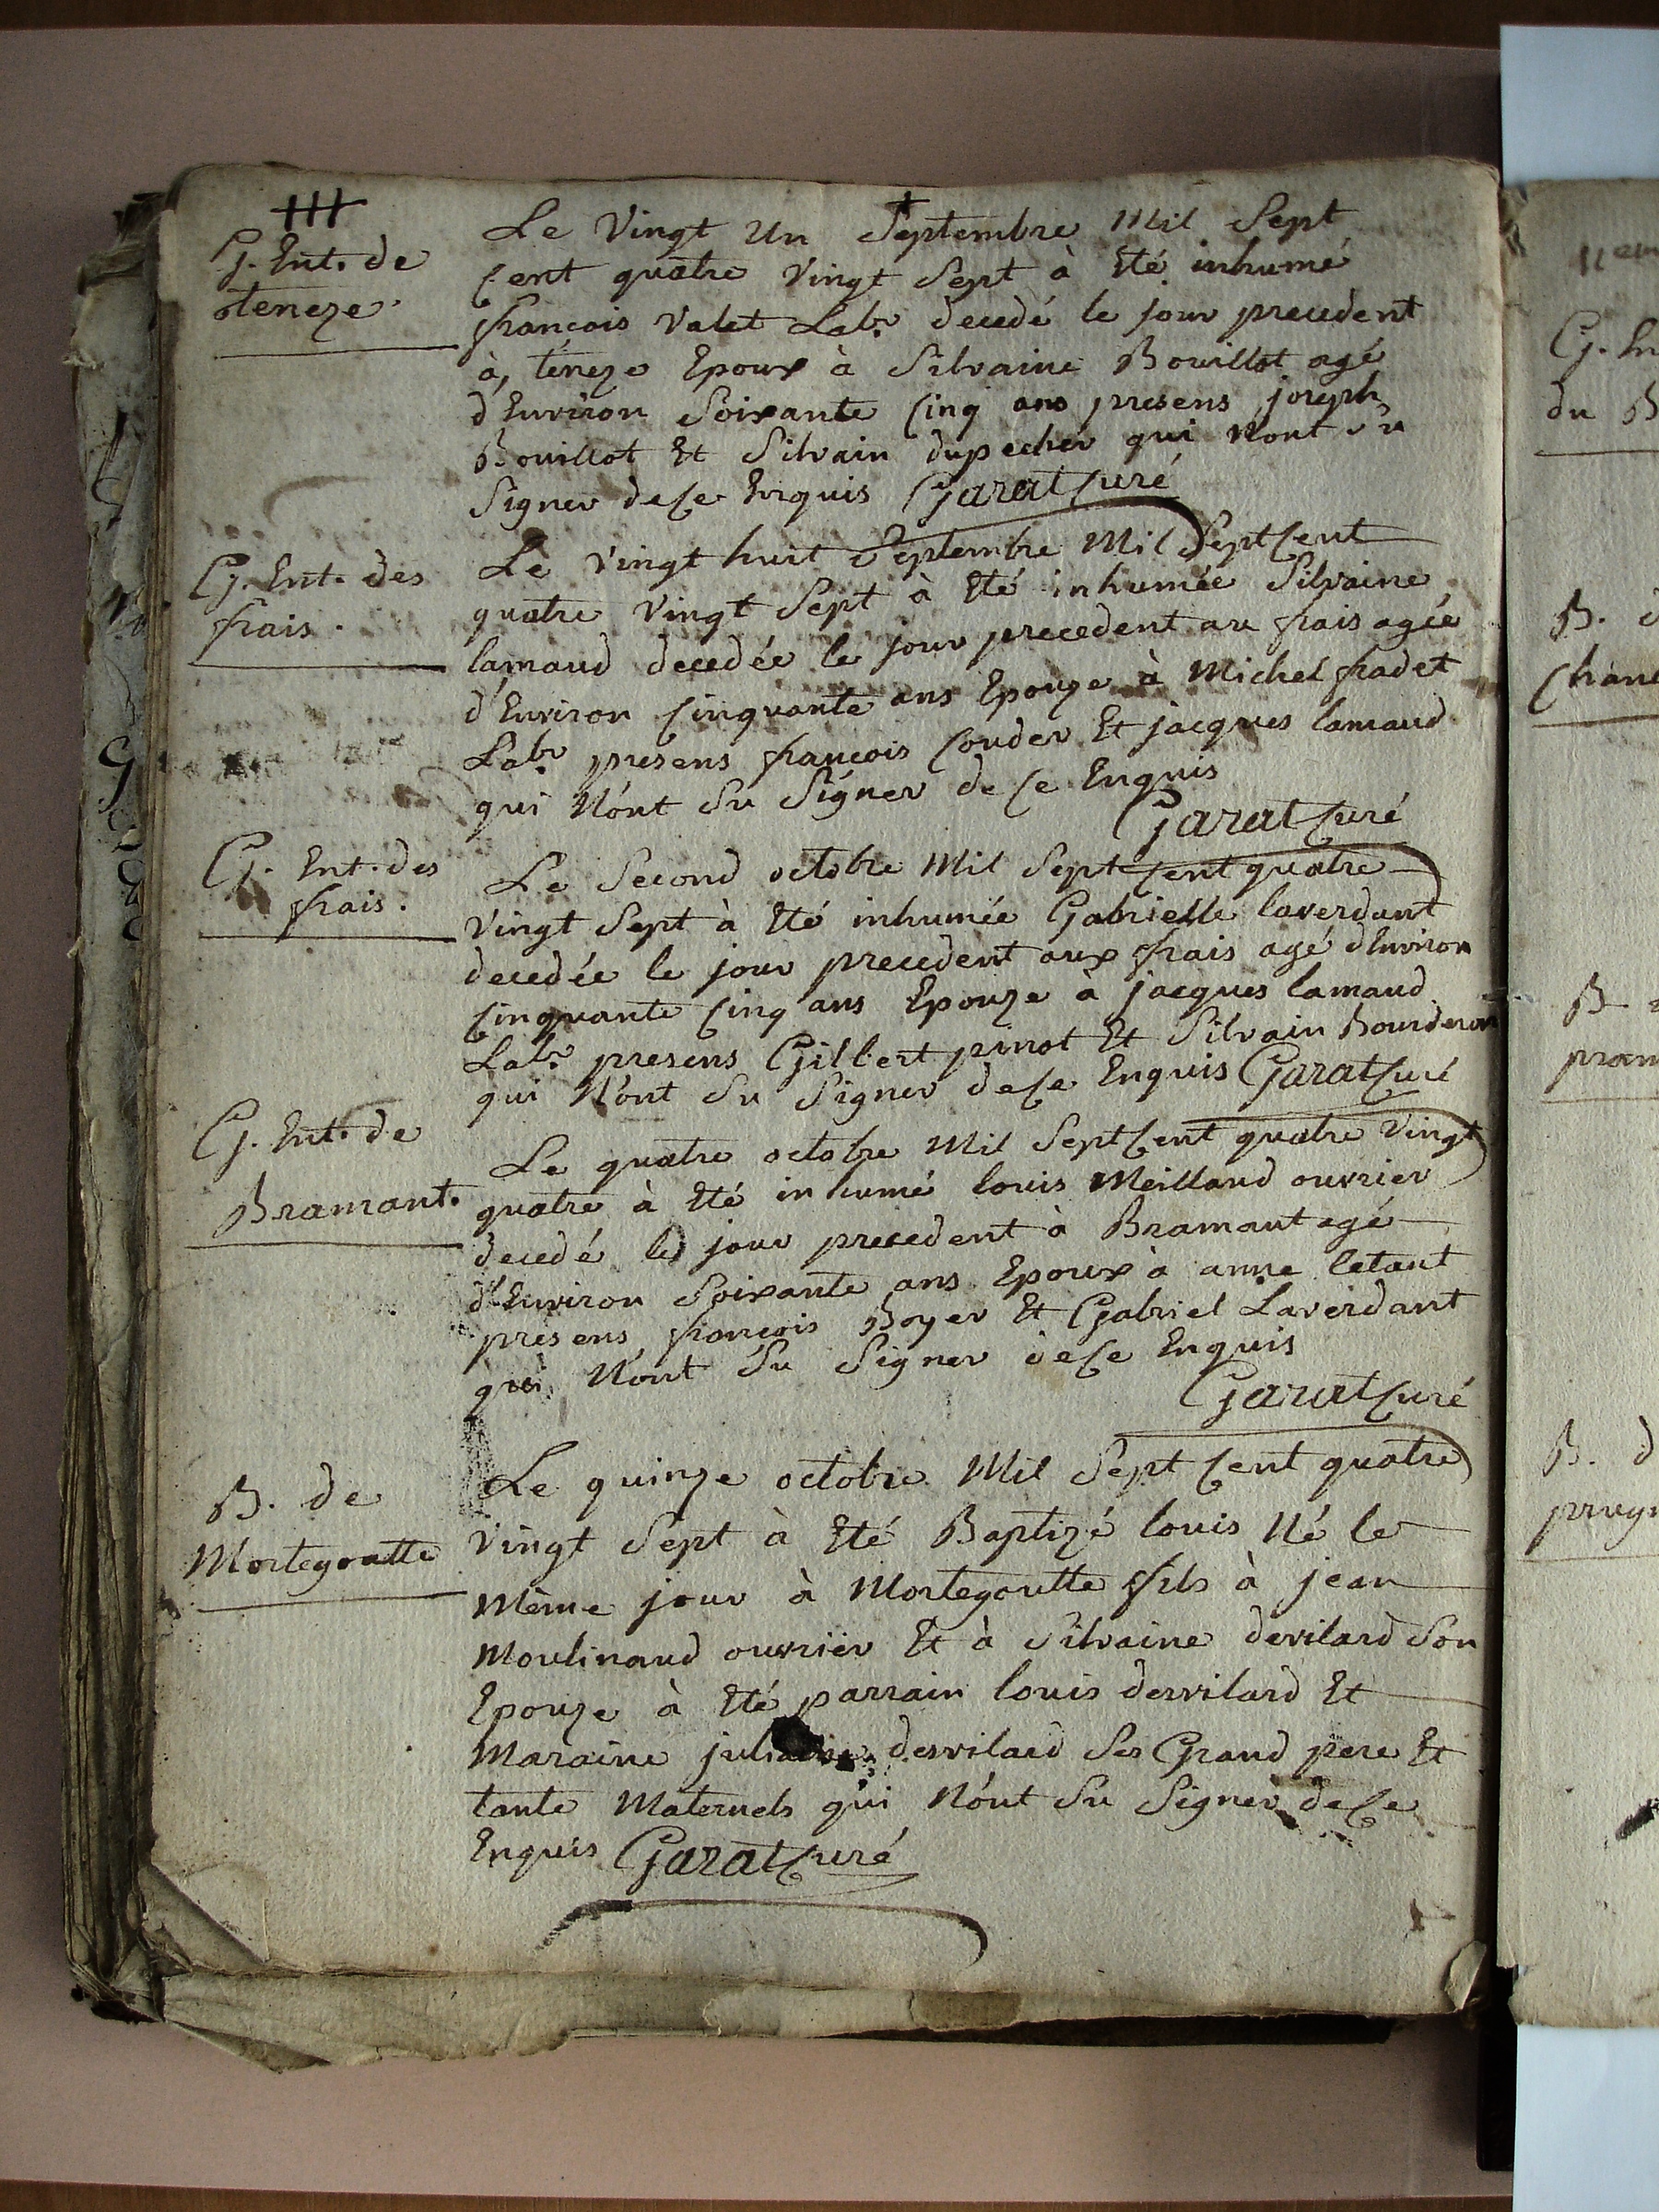 G. Ent. de
teneze.
Le Vingt Un Septembre Mil Sept
Cent quatre Vingt Sept à Eté inhumé
françois Valet Labr. decedé le jour precedent
à, teneze Epoux à Silvaine Bouillot agé
d'Environ Soixante Cinq ans presens joseph
Bouillot Et Silvain dupecher qui Nont Su
Signer de Ce Enquis Garat Curé
G. Ent. des
frais.
Le Vingt huit Septembre Mil Sept Cent
quatre Vingt Sept à Eté inhumée Silvaine
lamaud decedée le jour precedent au frais agée
d'Environ Cinquante ans Epouze à Michel fradet
Labr. presens françois Couder Et jacques lamaud
qui N'ont Su Signer de Ce Enquis
Garat Curé
G. Ent. des
frais.
Le Second octobre Mil Sept Cent quatre
Vingt Sept à Eté inhumée Gabrielle laverdant
decedée le jour precedent aux frais agé d'Environ
Cinquante Cinq ans Epouze à jacques lamaud
Labr. presens Gilbert pinot Et Silvain Bourderon
qui N'ont Su Signer de Ce Enquis Garat Curé
G. Ent. de
Bramant.
Le quatre octobre Mil Sept Cent quatre Vingt
quatre à Eté inhumé louis Meilland ouvrier
decedé le jour precedent à Bramant agé
d'Environ Soixante ans Epoux à anne letant
presens françois Boyer Et Gabriel Laverdant
qui N'ont Su Signer de Ce Enquis
Garat Curé
B. de
Mortegoutte
Le quinze octobre Mil Sept Cent quatre
Vingt Sept à Eté Baptizé louis Né le
Même jour à Mortegoutte fils à jean
Moulinaud ouvrier Et à Silvaine devilard Son
Epouze à Eté parrain louis desvilard Et
Maraine desvilard Ses Grand pere Et
tante Maternels qui N'ont Su Signer de Ce
Enquis Garat Curé